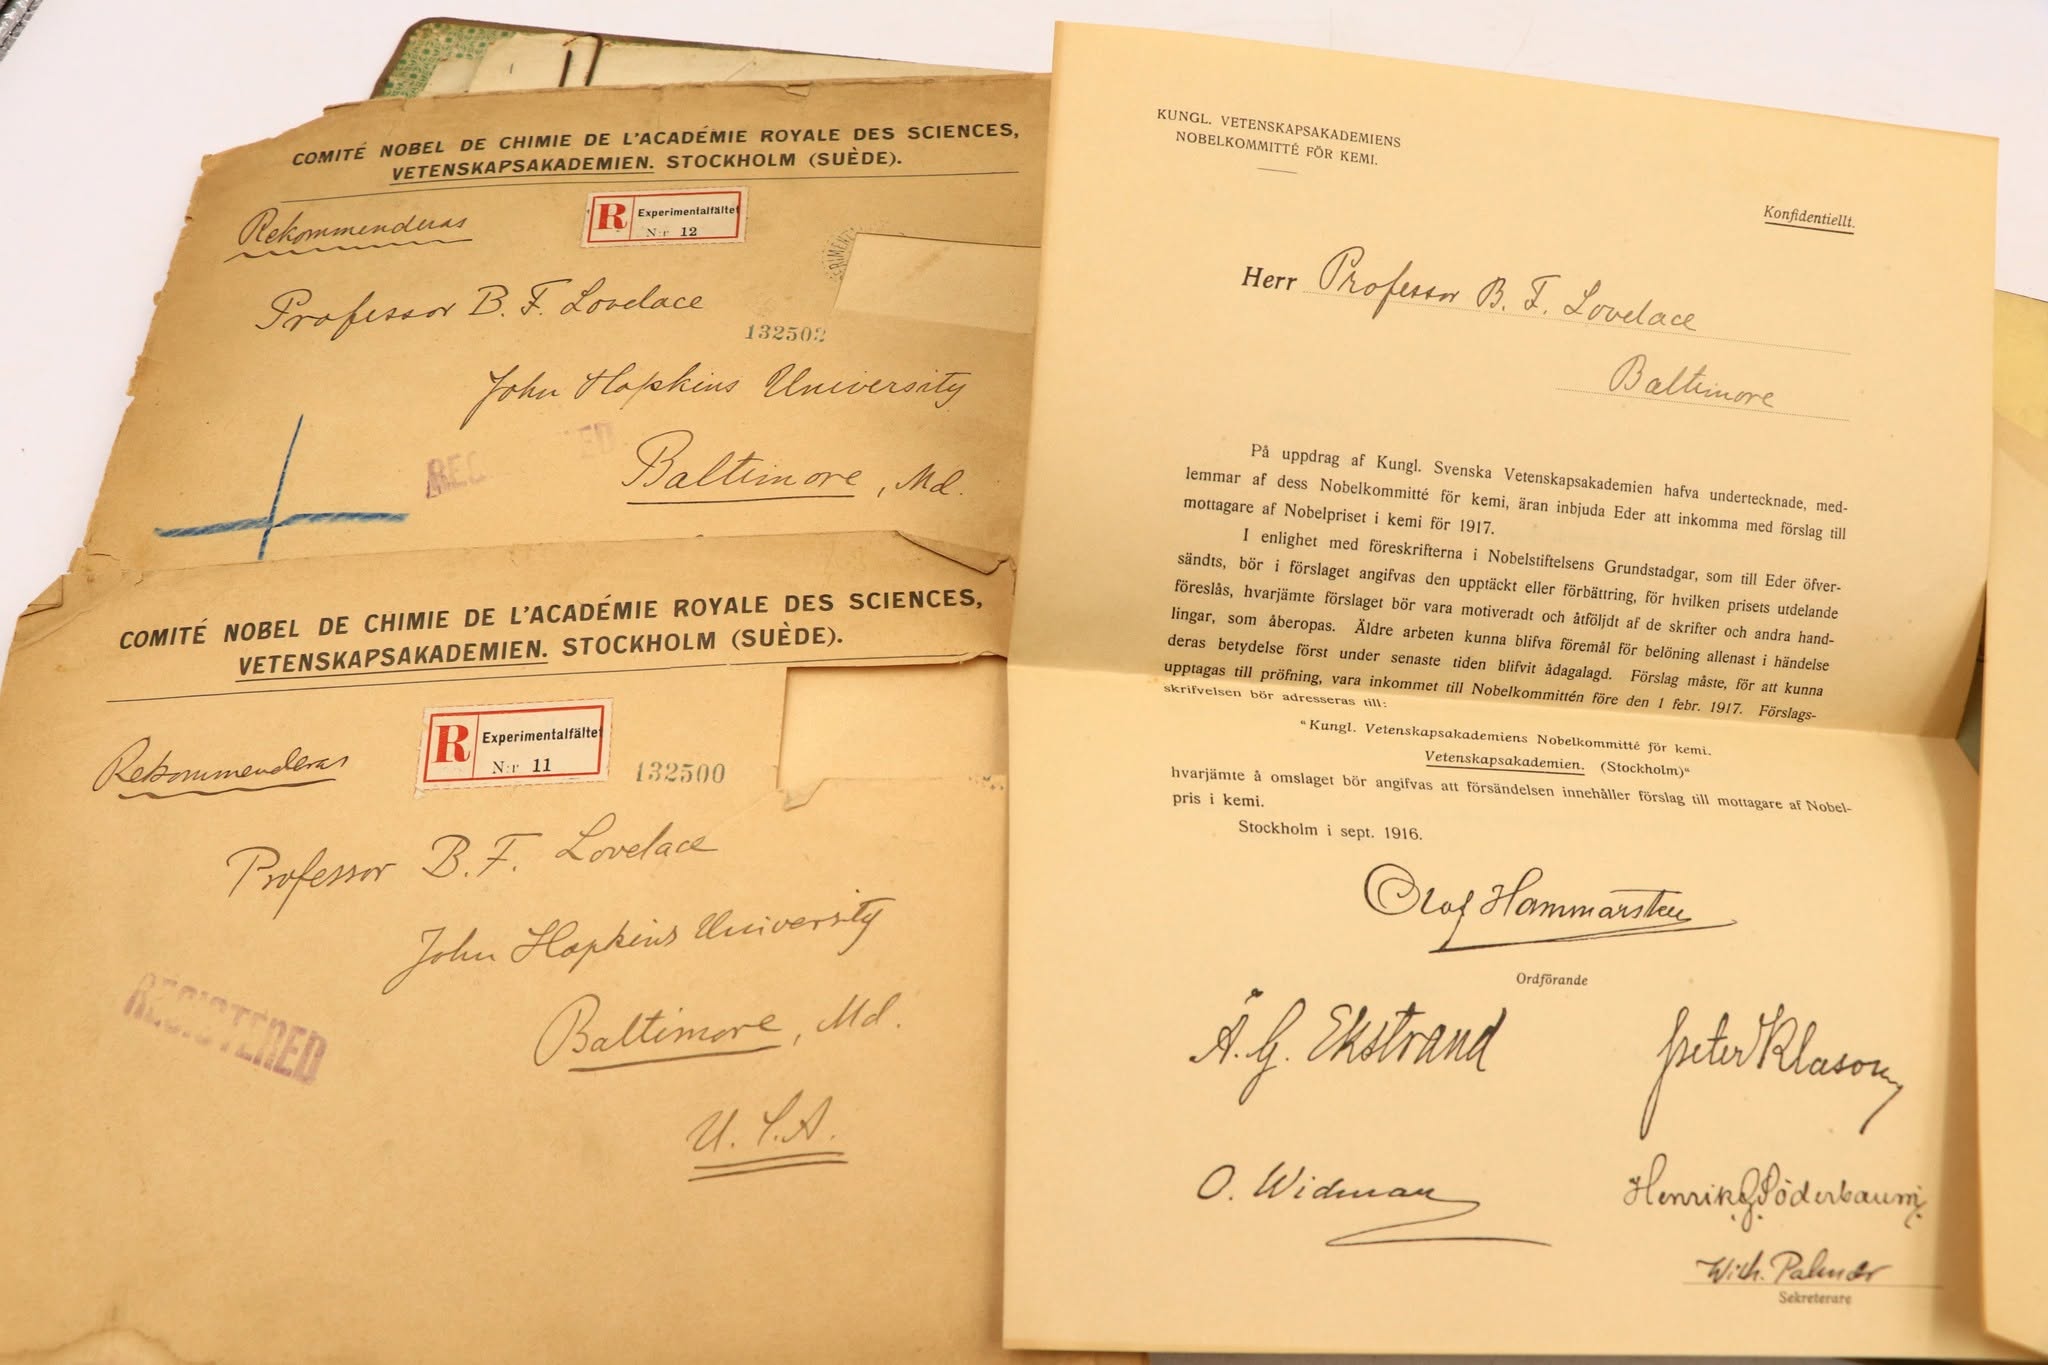 COMITÉ NOBEL DE CHIMIE DE L'ACADÉMIE ROYALE DES SCIENCES,
VETENSKAPSAKADEMIEN. STOCKHOLM (SUÈDE).
Rekommenderas
R Experimentalfältet
N:r 12
Professor B. F. Lovelace
132502
John Hopkins University
Baltimore, Md.
COMITÉ NOBEL DE CHIMIE DE L'ACADÉMIE ROYALE DES SCIENCES,
VETENSKAPSAKADEMIEN. STOCKHOLM (SUÈDE).
Rekommenderas
R Experimentalfältet
N:r 11
132500
Professor B. F. Lovelace
John Hopkins University
REGISTERED
Baltimore, Md.
U.S.A.
KUNGL. VETENSKAPSAKADEMIENS
NOBELKOMMITTÉ FÖR KEMI.
Konfidentiellt.
Herr Professor B. F. Lovelace
Baltimore
På uppdrag af Kungl. Svenska Vetenskapsakademien hafva undertecknade, med-
lemmar af dess Nobelkommitté för kemi, äran inbjuda Eder att inkomma med förslag till
mottagare af Nobelpriset i kemi för 1917.
I enlighet med föreskrifterna i Nobelstiftelsens Grundstadgar, som till Eder öfver-
sändts, bör i förslaget angifvas den upptäckt eller förbättring, för hvilken prisets utdelande
föreslås, hvarjämte förslaget bör vara motiveradt och åtföljdt af de skrifter och andra hand-
lingar, som åberopas. Äldre arbeten kunna blifva föremål för belöning allenast i händelse
deras betydelse först under senaste tiden blifvit ådagalagd. Förslag måste, för att kunna
upptagas till pröfning, vara inkommet till Nobelkommittén före den 1 febr. 1917. Förslags-
skrifvelsen bör adresseras till:
"Kungl. Vetenskapsakademiens Nobelkommitté för kemi.
Vetenskapsakademien. (Stockholm)"
hvarjämte å omslaget bör angifvas att försändelsen innehåller förslag till mottagare af Nobel-
pris i kemi.
Stockholm i sept. 1916.
Olof Hammarsten
Ordförande
Å. G. Ekstrand
Peter Klason
O. Widman
Henrik G. Söderbaum
Wilh. Palmær
Sekreterare